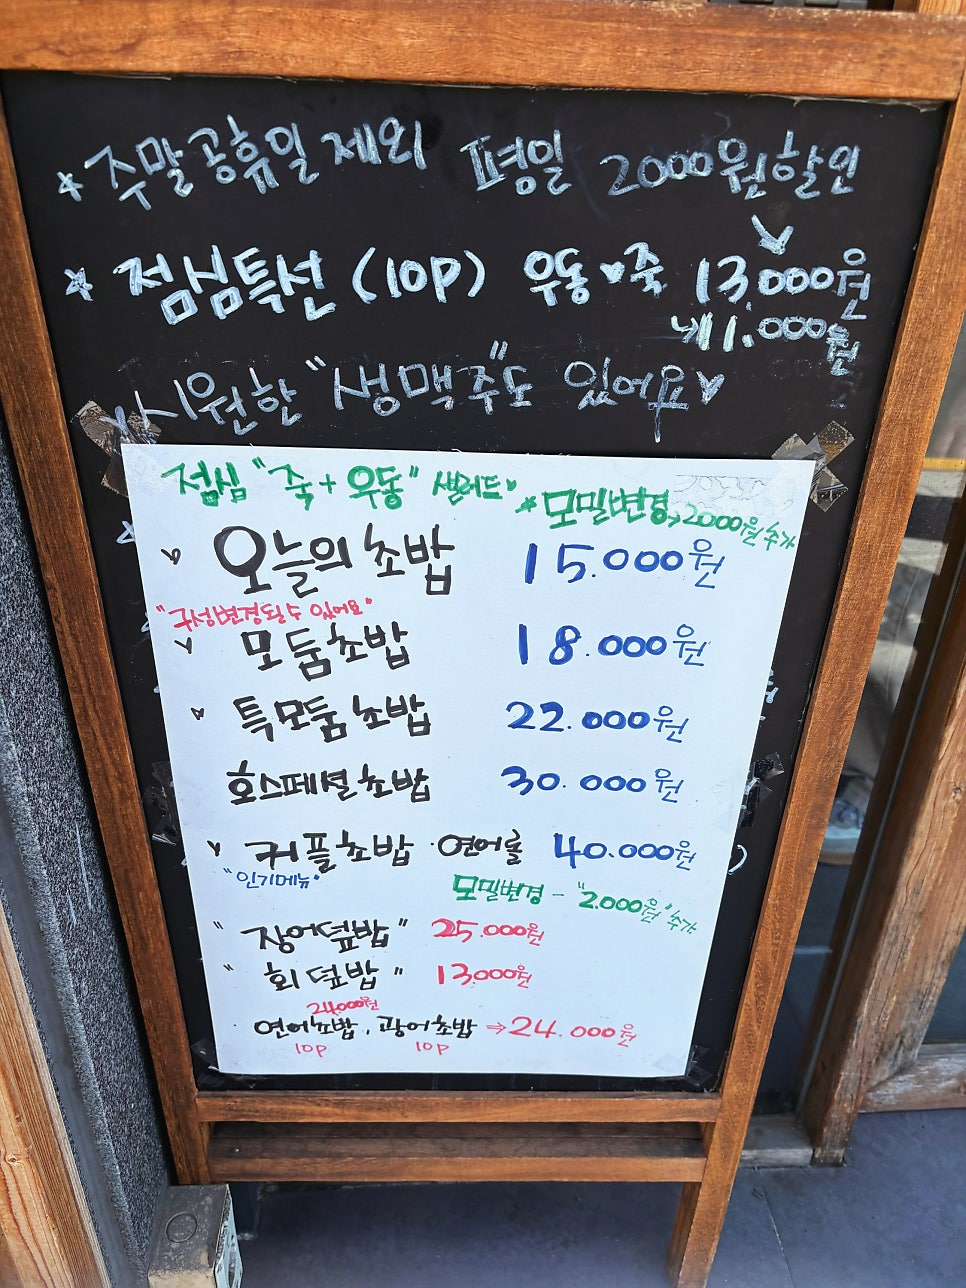 주말공휴일 제외 평일 2000원할인
점심특선 (10P) 우동♥죽 13,000원
11.000원
시원한 "생맥주"도 있어요♥
점심 "죽 + 우동" 샐러드♥
*모밀변경→2000원 추가
오늘의 초밥 15.000원
"구성변경될 수 있어요"
모듬초밥 18.000원
특모듬초밥 22.000원
호스페셜초밥 30.000원
커플초밥 · 연어롤 40.000원
"인기메뉴"
모밀변경 - "2.000원" 추가
"장어덮밥" 25.000원
"회덮밥" 13000원
24.000원
연어초밥, 광어초밥 → 24.000원
10P 10P